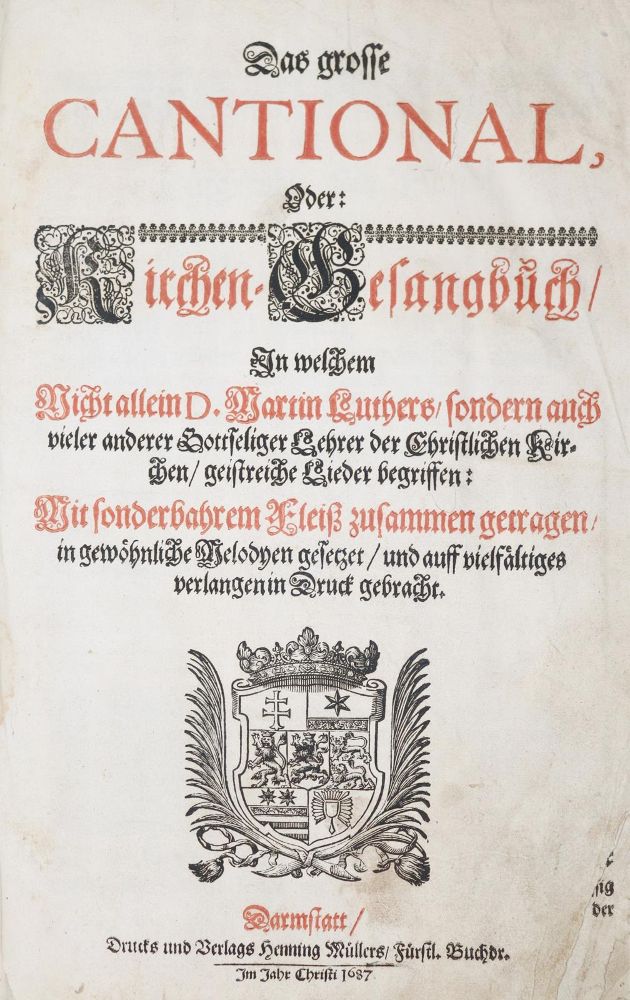 Das grosse
CANTIONAL,
Oder:
Kirchen-Gesangbuch/
In welchem
Nicht allein D. Martin Luthers/ sondern auch
vieler anderer Gottseliger Lehrer der Christlichen Kir-
chen/ geistreiche Lieder begriffen:
Mit sonderbahrem Fleiß zusammen getragen/
in gewöhnliche Melodyen gesetzet/ und auff vielfältiges
verlangen in Druck gebracht.
sig
der
Darmstatt/
Drucks und Verlags Henning Müllers/ Fürstl. Buchdr.
Im Jahr Christi 1687